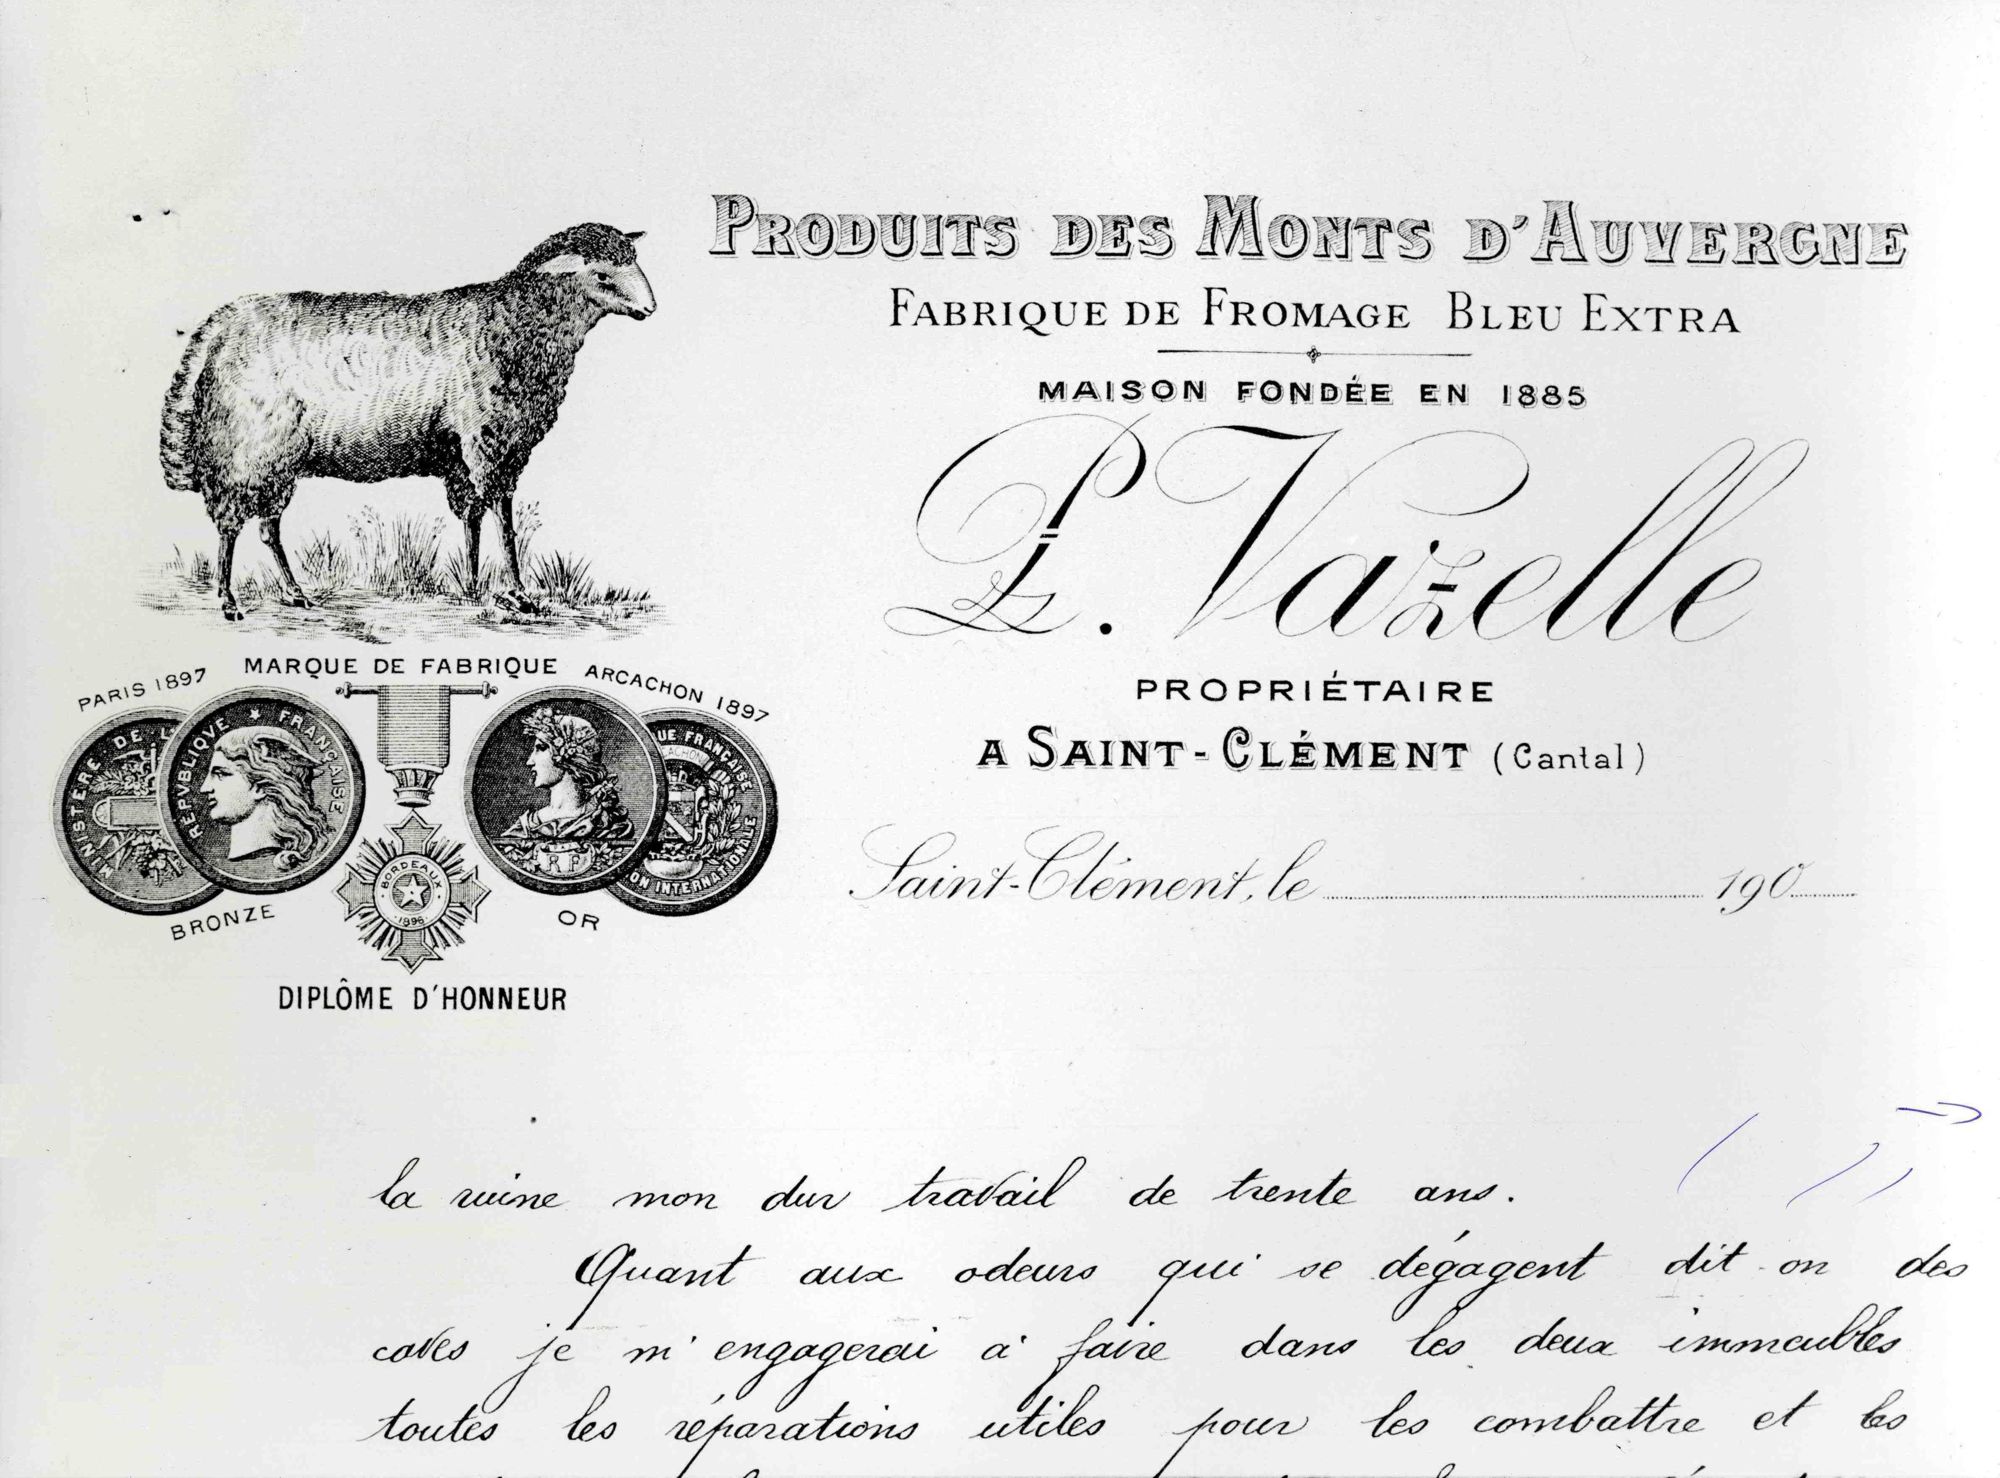 PRODUITS DES MONTS D'AUVERGNE
FABRIQUE DE FROMAGE BLEU EXTRA
MAISON FONDÉE EN 1885
P. Vazelle
PROPRIÉTAIRE
A SAINT-CLÉMENT (Cantal)
Saint-Clément, le 190
MARQUE DE FABRIQUE
PARIS 1897
ARCACHON 1897
MINISTERE DE L
REPVBLIQVE ★ FRANÇAISE
BORDEAUX
1896
R F
UE FRANÇAISE
ARCACHON
ON INTERNATIONALE
BRONZE
OR
DIPLÔME D'HONNEUR
la ruine mon dur travail de trente ans.
Quant aux odeurs qui se dégagent dit-on des
caves je m'engagerai à faire dans les deux immeubles
toutes les réparations utiles pour les combattre et les